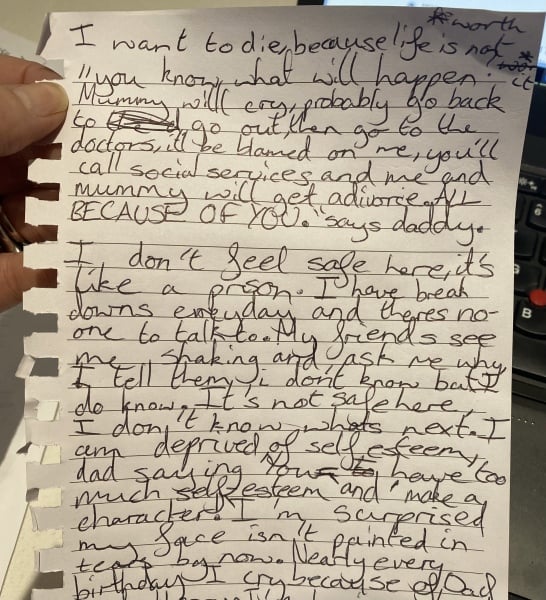 *worth
I want to die, because life is not * it
"you know what will happen.
Mummy will cry, probably go back
to go out, then go to the
doctors, it'll be blamed on me, you'll
call social services and me and
mummy will get a divorce. ALL
BECAUSE OF YOU." says daddy.
I don't feel safe here, it's
like a prison. I have break
downs everyday and theres no-
one to talk to. My friends see
me shaking and ask me why
I tell them i don't know but I
do know. It's not safe here,
I don't know whats next. I
am deprived of self esteem,
dad saying 'You have too
much self esteem and' make a
character.' I'm surprised
my face isn't painted in
tears by now. Nearly every
birthday I cry because of Dad
B